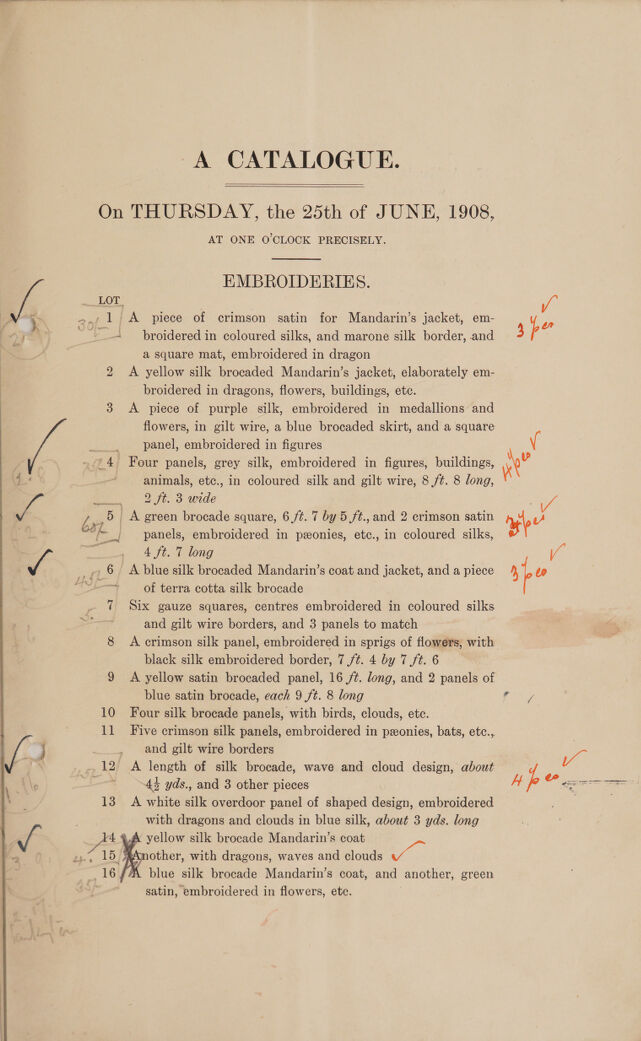 A CATALOGUE.
On THURSDAY, the 25th of JUNE, 1908,
AT ONE O'CLOCK PRECISELY.
EMBROIDERIES.
LOT
1 A piece of crimson satin for Mandarin's jacket, em-
broidered in coloured silks, and marone silk border, and
a square mat, embroidered in dragon
3 pces
30/-
2 A yellow silk brocaded Mandarin's jacket, elaborately em-
broidered in dragons, flowers, buildings, etc.
3 A piece of purple silk, embroidered in medallions and
flowers, in gilt wire, a blue brocaded skirt, and a square
panel, embroidered in figures
4 Four panels, grey silk, embroidered in figures, buildings,
animals, etc., in coloured silk and gilt wire, 8 ft. 8 long,
2 ft. 3 wide
4 pces
5 A green brocade square, 6 ft. 7 by 5 ft., and 2 crimson satin
panels, embroidered in pæonies, etc., in coloured silks,
4 ft. 7 long
60/-
6 A blue silk brocaded Mandarin's coat and jacket, and a piece
of terra cotta silk brocade
3 pces
45/-
7 Six gauze squares, centres embroidered in coloured silks
and gilt wire borders, and 3 panels to match
8 A crimson silk panel, embroidered in sprigs of flowers, with
black silk embroidered border, 7 ft. 4 by 7 ft. 6
9 A yellow satin brocaded panel, 16 ft. long, and 2 panels of
blue satin brocade, each 9 ft. 8 long
10 Four silk brocade panels, with birds, clouds, etc.
11 Five crimson silk panels, embroidered in pæonies, bats, etc.,
and gilt wire borders
12 A length of silk brocade, wave and cloud design, about
4½ yds., and 3 other pieces
4 pces
13 A white silk overdoor panel of shaped design, embroidered
with dragons and clouds in blue silk, about 3 yds. long
14 A yellow silk brocade Mandarin's coat
15 Another, with dragons, waves and clouds
16 A blue silk brocade Mandarin's coat, and another, green
satin, embroidered in flowers, etc.
35/-